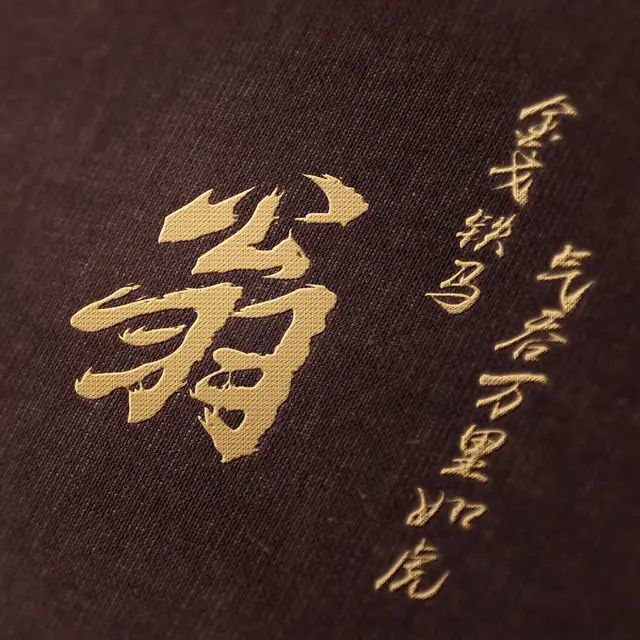 翁
金戈铁马
气吞万里如虎